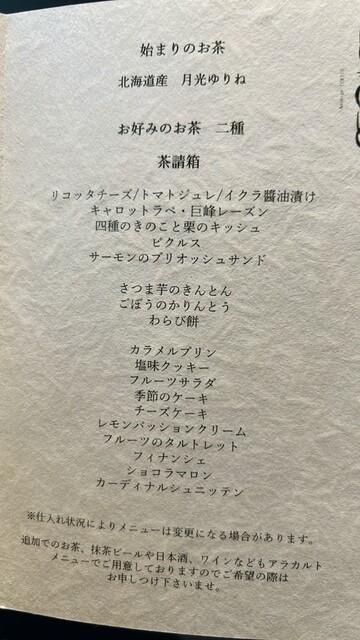 始まりのお茶
北海道産　月光ゆりね
お好みのお茶　二種
茶請箱
リコッタチーズ/トマトジュレ/イクラ醤油漬け
キャロットラペ・巨峰レーズン
四種のきのこと栗のキッシュ
ピクルス
サーモンのブリオッシュサンド
さつま芋のきんとん
ごぼうのかりんとう
わらび餅
カラメルプリン
塩味クッキー
フルーツサラダ
季節のケーキ
チーズケーキ
レモンパッションクリーム
フルーツのタルトレット
フィナンシェ
ショコラマロン
カーディナルシュニッテン
※仕入れ状況によりメニューは変更になる場合があります。
追加でのお茶、抹茶ビールや日本酒、ワインなどもアラカルト
メニューでご用意しておりますのでご希望の際は
お申しつけ下さいませ。